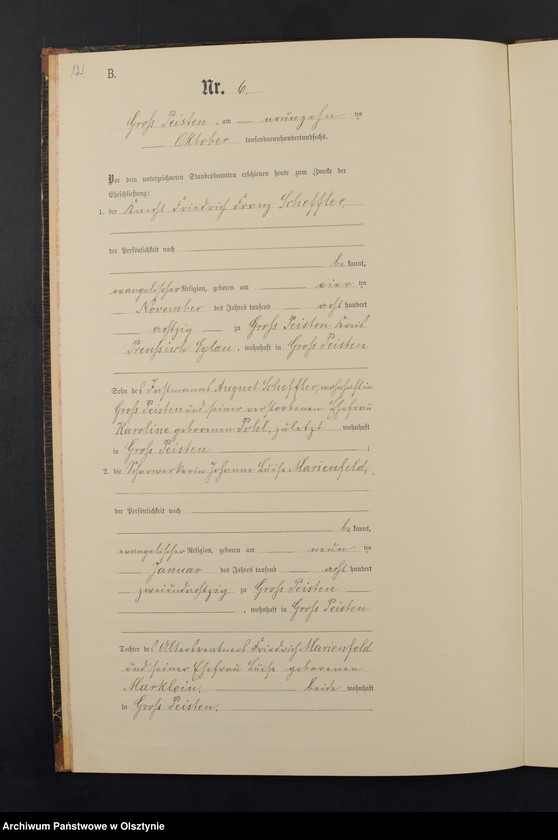 121
B.
Nr. 6.
Groß Peisten, am neunzehn ten
Oktober tausendneunhundertundsechs.
Vor dem unterzeichneten Standesbeamten erschienen heute zum Zwecke der
Eheschließung:
1. der Knecht Friedrich Franz Scheffler,
der Persönlichkeit nach
be kannt,
evangelischer Religion, geboren am vier ten
November des Jahres tausend acht hundert
achtzig zu Groß Peisten Kreis
Preußisch Eylau, wohnhaft in Groß Peisten
Sohn des Instmanns August Scheffler, wohnhaft in
Groß Peisten und seiner verstorbenen Ehefrau
Karoline geborenen Pohl, zuletzt wohnhaft
in Groß Peisten;
2. die Scharwerkerin Johanne Luise Marienfeld,
der Persönlichkeit nach
be kannt,
evangelischer Religion, geboren am neun ten
Januar des Jahres tausend acht hundert
zweiundachtzig zu Groß Peisten
, wohnhaft in Groß Peisten
Tochter des Altersrentners Friedrich Marienfeld
und seiner Ehefrau Luise geborenen
Marklein, beide wohnhaft
in Groß Peisten.
Archiwum Państwowe w Olsztynie